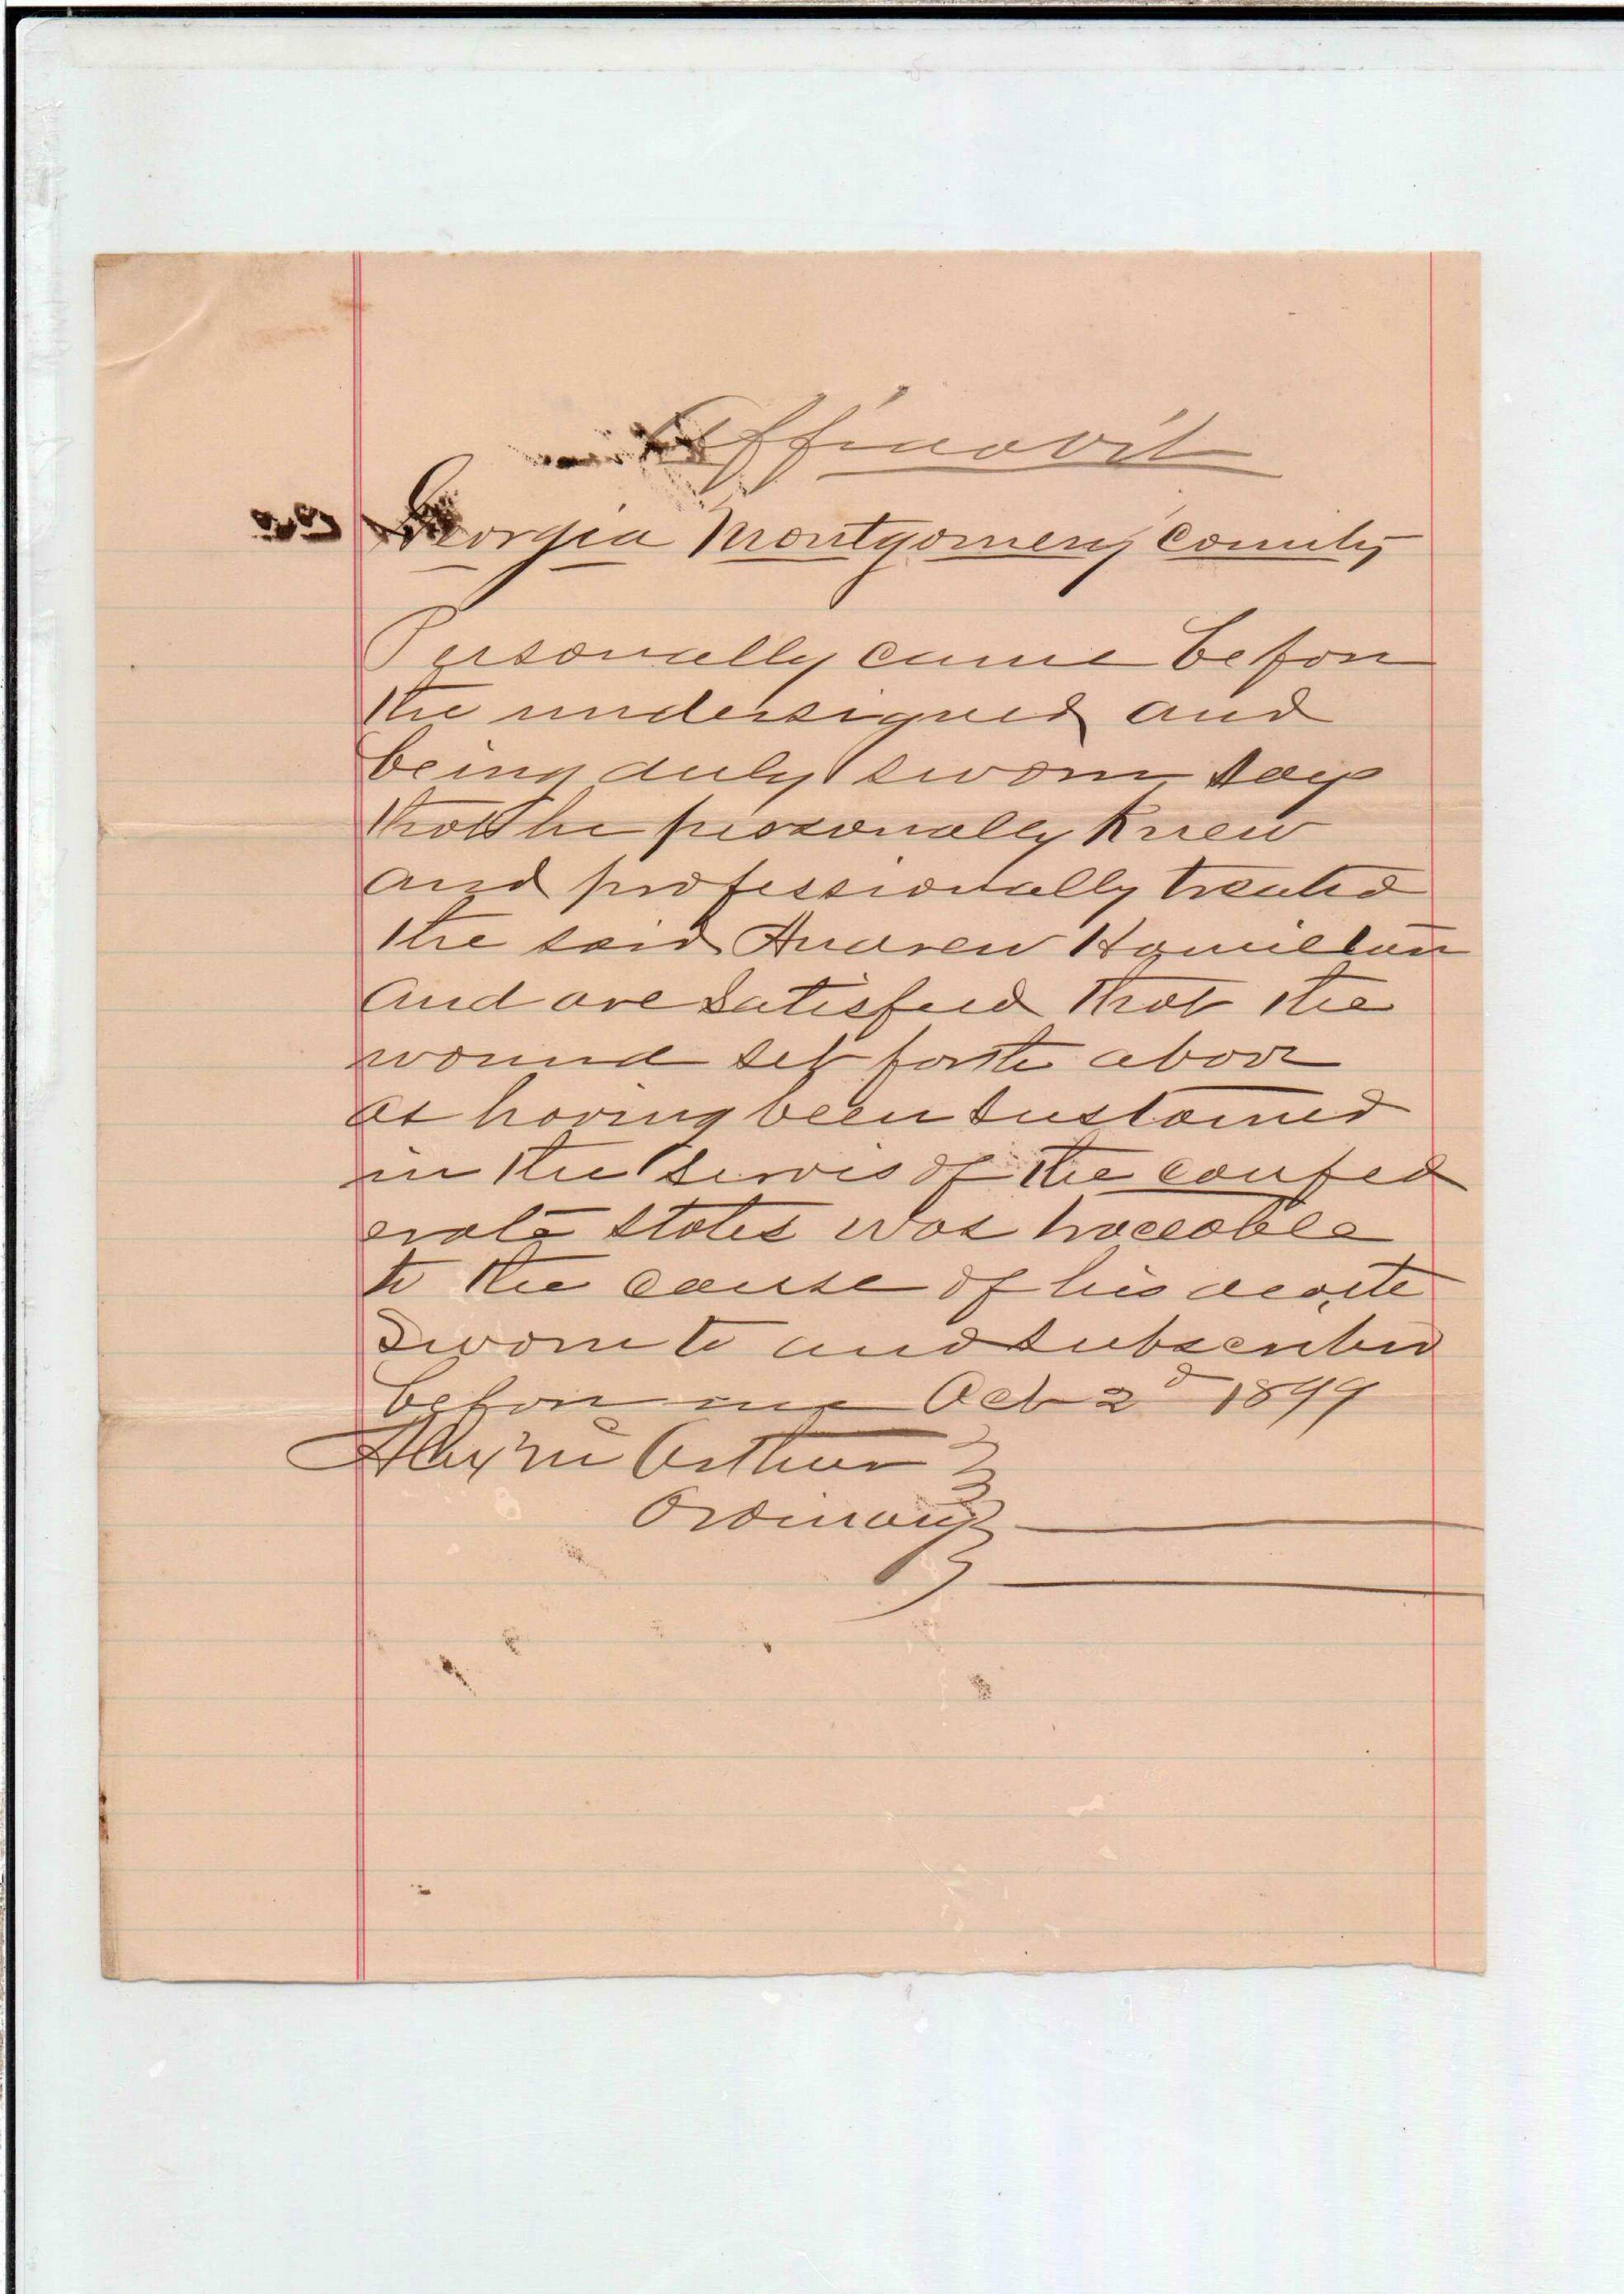 Affidavit
Georgia Montgomery County
Personally came before
the undersigned and
being duly sworn says
that he personally knew
and professionally treated
the said Andrew Hamilton
and are satisfied that the
wound set forth above
as having been sustained
in the servis of the confed
erate states was traceable
to the cause of his death
Sworn to and subscribed
before me Oct 2d 1899
Alex McArthur
Ordinary